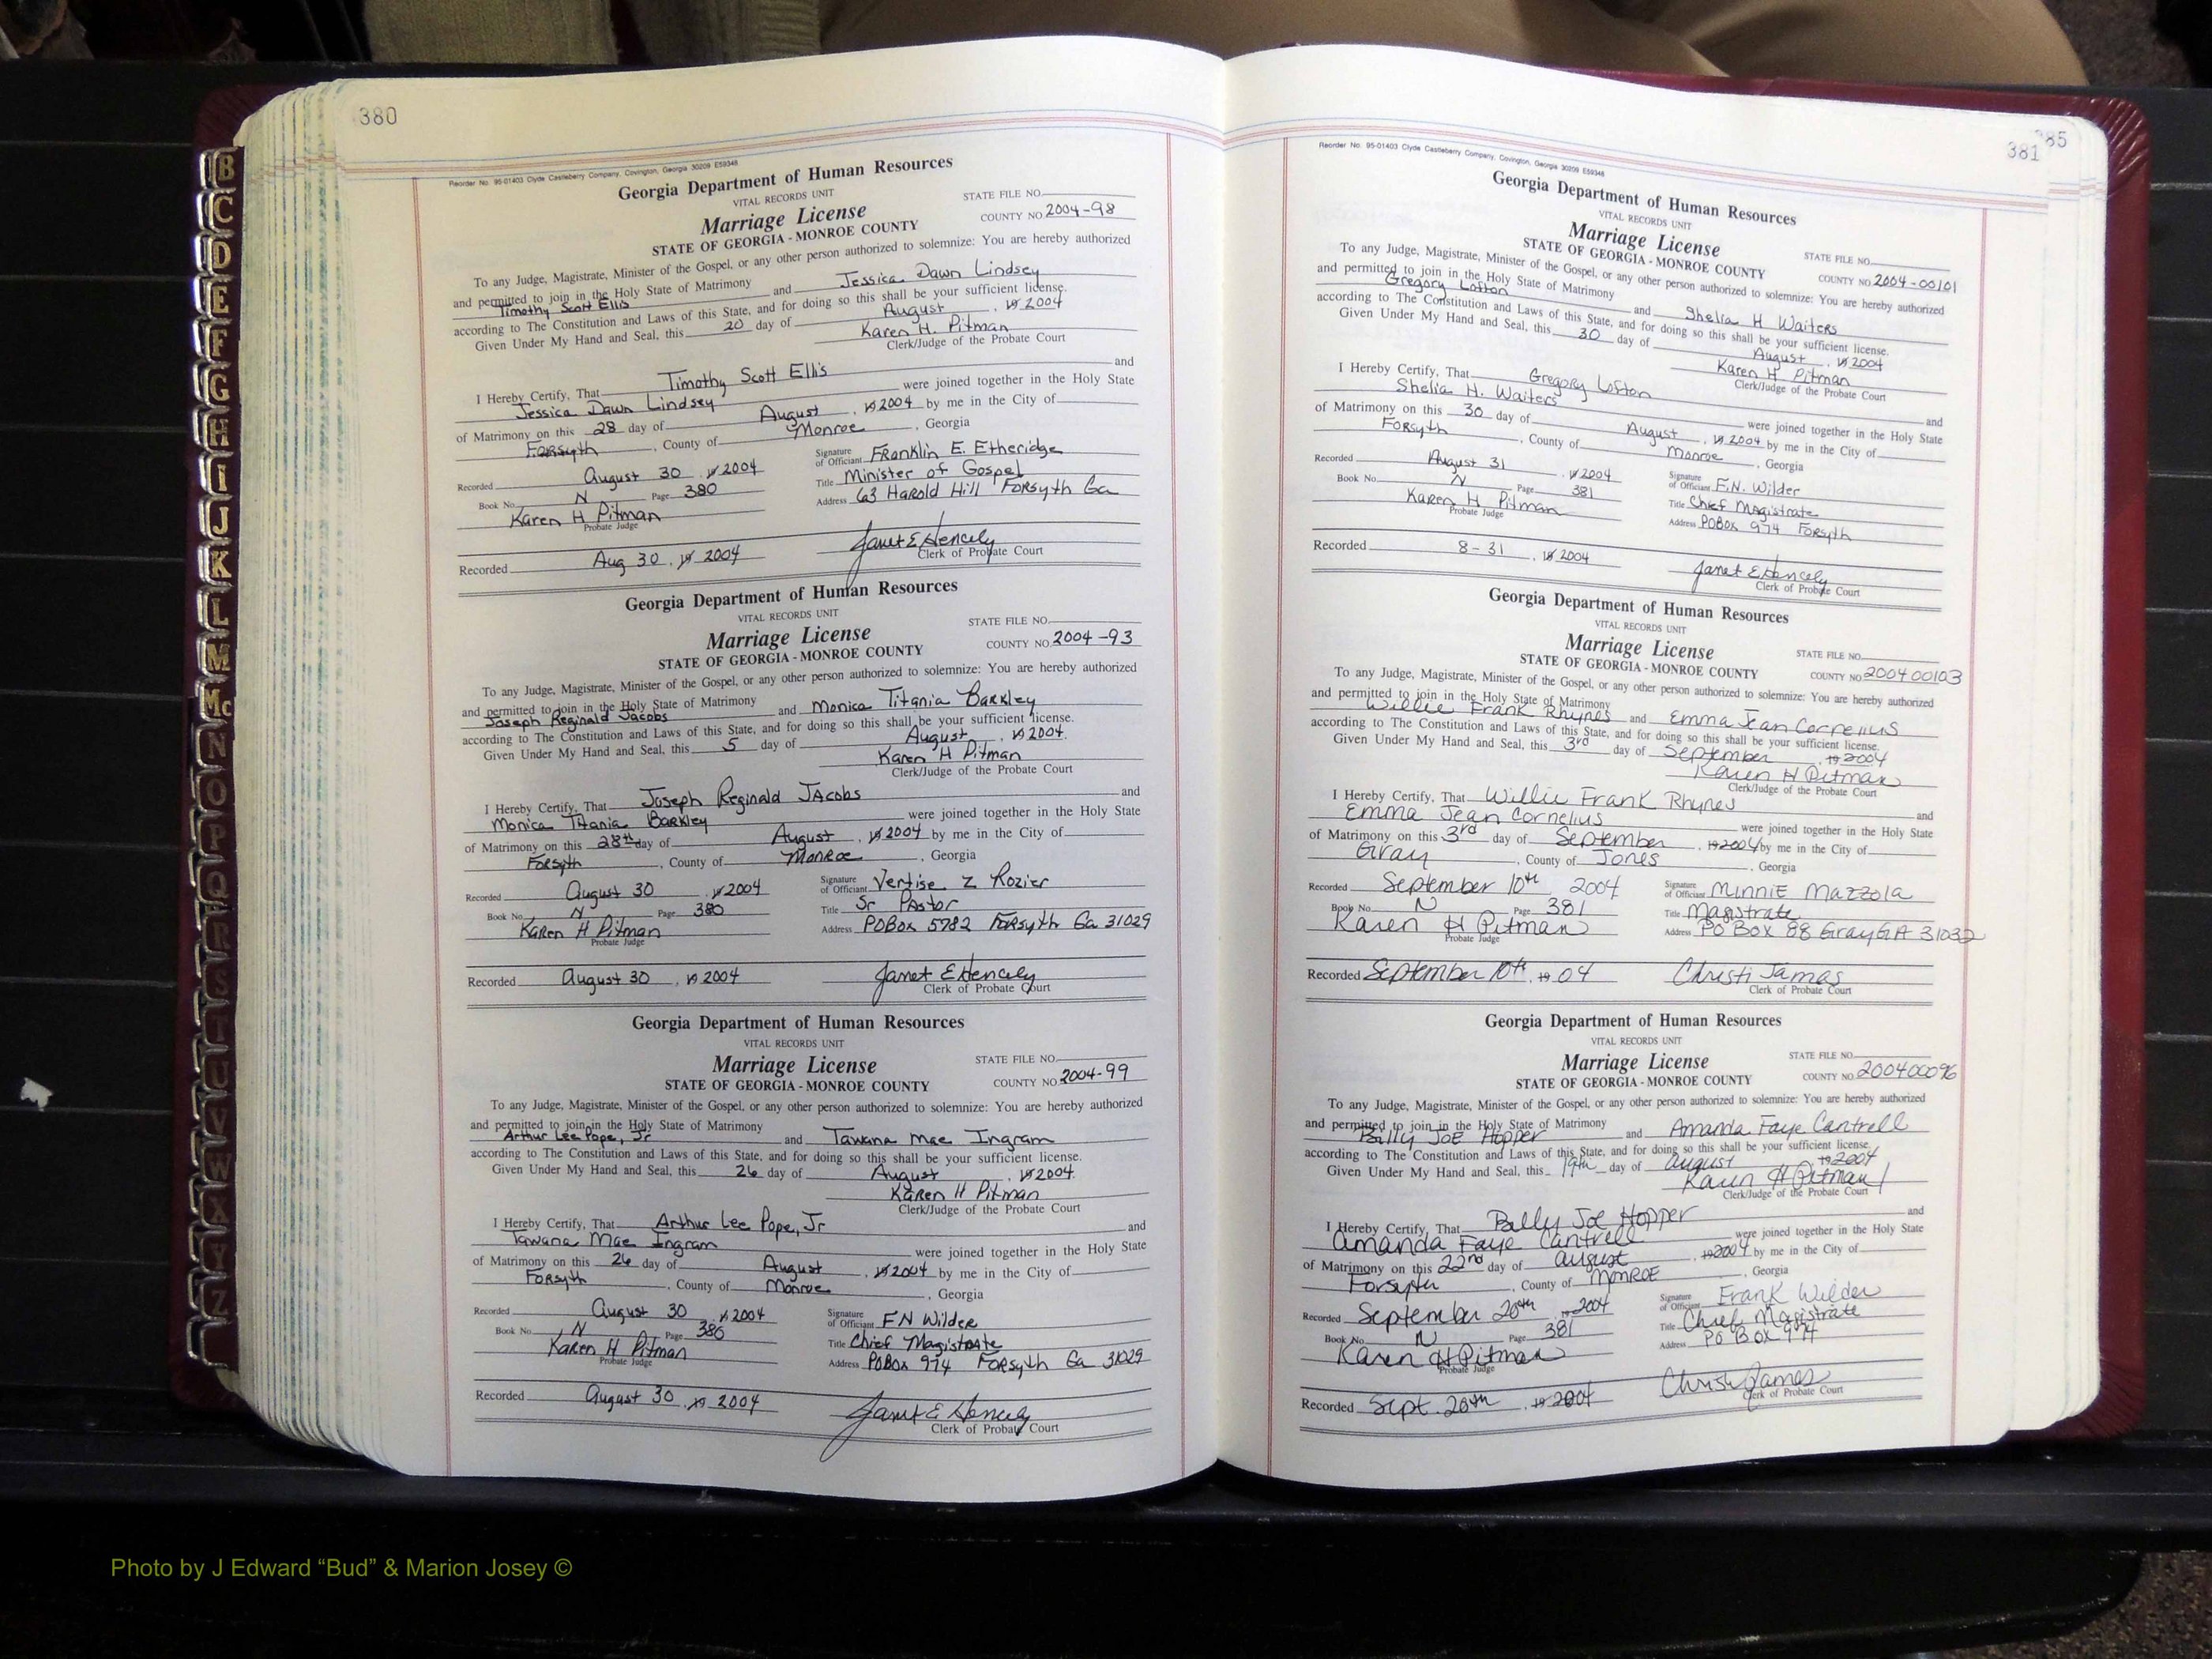 380
Reorder No. 95-01403 Clyde Castleberry Company, Covington, Georgia 30209 E59348
Georgia Department of Human Resources
VITAL RECORDS UNIT
STATE FILE NO.
Marriage License
COUNTY NO 2004-98
STATE OF GEORGIA - MONROE COUNTY
To any Judge, Magistrate, Minister of the Gospel, or any other person authorized to solemnize: You are hereby authorized
and permitted to join in the Holy State of Matrimony
Timothy Scott Ellis and Jessica Dawn Lindsey
according to The Constitution and Laws of this State, and for doing so this shall be your sufficient license.
Given Under My Hand and Seal, this 20 day of August, 19 2004
Karen H. Pitman
Clerk/Judge of the Probate Court
I Hereby Certify, That Timothy Scott Ellis and
Jessica Dawn Lindsey were joined together in the Holy State
of Matrimony on this 28 day of August, 19 2004 by me in the City of
Forsyth, County of Monroe, Georgia
Recorded August 30, 19 2004 Signature of Officiant Franklin E. Etheridge
Book No. N Page 380 Title Minister of Gospel
Karen H Pitman Address 63 Harold Hill Forsyth Ga
Probate Judge
Recorded Aug 30, 19 2004 Janet E Hencely
Clerk of Probate Court
Georgia Department of Human Resources
VITAL RECORDS UNIT
STATE FILE NO.
Marriage License
COUNTY NO 2004-93
STATE OF GEORGIA - MONROE COUNTY
To any Judge, Magistrate, Minister of the Gospel, or any other person authorized to solemnize: You are hereby authorized
and permitted to join in the Holy State of Matrimony
Joseph Reginald Jacobs and Monica Titania Barkley
according to The Constitution and Laws of this State, and for doing so this shall be your sufficient license.
Given Under My Hand and Seal, this 5 day of August, 19 2004.
Karen H Pitman
Clerk/Judge of the Probate Court
I Hereby Certify, That Joseph Reginald Jacobs and
Monica Titania Barkley were joined together in the Holy State
of Matrimony on this 28th day of August, 19 2004 by me in the City of
Forsyth, County of Monroe, Georgia
Recorded August 30, 19 2004 Signature of Officiant Vertise Z Rozier
Book No. N Page 380 Title Sr Pastor
Karen H Pitman Address PO Box 5782 Forsyth Ga 31029
Probate Judge
Recorded August 30, 19 2004 Janet E Hencely
Clerk of Probate Court
Georgia Department of Human Resources
VITAL RECORDS UNIT
STATE FILE NO.
Marriage License
COUNTY NO 2004-99
STATE OF GEORGIA - MONROE COUNTY
To any Judge, Magistrate, Minister of the Gospel, or any other person authorized to solemnize: You are hereby authorized
and permitted to join in the Holy State of Matrimony
Arthur Lee Pope, Jr and Tawana Mae Ingram
according to The Constitution and Laws of this State, and for doing so this shall be your sufficient license.
Given Under My Hand and Seal, this 26 day of August, 19 2004.
Karen H Pitman
Clerk/Judge of the Probate Court
I Hereby Certify, That Arthur Lee Pope, Jr and
Tawana Mae Ingram were joined together in the Holy State
of Matrimony on this 26 day of August, 19 2004 by me in the City of
Forsyth, County of Monroe, Georgia
Recorded August 30, 19 2004 Signature of Officiant F N Wilder
Book No. N Page 380 Title Chief Magistrate
Karen H Pitman Address PO Box 974 Forsyth Ga 31029
Probate Judge
Recorded August 30, 19 2004 Janet E Hencely
Clerk of Probate Court
385
381
Reorder No. 95-01403 Clyde Castleberry Company, Covington, Georgia 30209 E59348
Georgia Department of Human Resources
VITAL RECORDS UNIT
Marriage License
STATE FILE NO.
STATE OF GEORGIA - MONROE COUNTY
COUNTY NO 2004-00101
To any Judge, Magistrate, Minister of the Gospel, or any other person authorized to solemnize: You are hereby authorized
and permitted to join in the Holy State of Matrimony
Gregory Lofton and Shelia H Waiters
according to The Constitution and Laws of this State, and for doing so this shall be your sufficient license.
Given Under My Hand and Seal, this 30 day of August, 19 2004
Karen H Pitman
Clerk/Judge of the Probate Court
I Hereby Certify, That Gregory Lofton and
Shelia H. Waiters were joined together in the Holy State
of Matrimony on this 30 day of August, 19 2004 by me in the City of
Forsyth, County of Monroe, Georgia
Recorded August 31, 19 2004 Signature of Officiant F.N. Wilder
Book No. N Page 381 Title Chief Magistrate
Karen H Pitman Address PO Box 974 Forsyth
Probate Judge
Recorded 8-31, 19 2004 Janet E Hencely
Clerk of Probate Court
Georgia Department of Human Resources
VITAL RECORDS UNIT
Marriage License
STATE FILE NO.
STATE OF GEORGIA - MONROE COUNTY
COUNTY NO 200400103
To any Judge, Magistrate, Minister of the Gospel, or any other person authorized to solemnize: You are hereby authorized
and permitted to join in the Holy State of Matrimony
Willie Frank Rhynes and Emma Jean Cornelius
according to The Constitution and Laws of this State, and for doing so this shall be your sufficient license.
Given Under My Hand and Seal, this 3rd day of September, 19 2004
Karen H Pitman
Clerk/Judge of the Probate Court
I Hereby Certify, That Willie Frank Rhynes and
Emma Jean Cornelius were joined together in the Holy State
of Matrimony on this 3rd day of September, 19 2004 by me in the City of
Gray, County of Jones, Georgia
Recorded September 10th 2004 Signature of Officiant Minnie Mazzola
Book No. N Page 381 Title Magistrate
Karen H Pitman Address PO Box 88 Gray GA 31032
Probate Judge
Recorded September 10th, 19 04 Christi James
Clerk of Probate Court
Georgia Department of Human Resources
VITAL RECORDS UNIT
STATE FILE NO.
Marriage License
COUNTY NO 200400096
STATE OF GEORGIA - MONROE COUNTY
To any Judge, Magistrate, Minister of the Gospel, or any other person authorized to solemnize: You are hereby authorized
and permitted to join in the Holy State of Matrimony
Billy Joe Hopper and Amanda Faye Cantrell
according to The Constitution and Laws of this State, and for doing so this shall be your sufficient license.
Given Under My Hand and Seal, this 19th day of August 19 2004
Karen H Pitman
Clerk/Judge of the Probate Court
I Hereby Certify, That Billy Joe Hopper and
Amanda Faye Cantrell were joined together in the Holy State
of Matrimony on this 22nd day of August, 19 2004 by me in the City of
Forsyth, County of Monroe, Georgia
Recorded September 20th, 19 2004 Signature of Officiant Frank Wilder
Book No. N Page 381 Title Chief Magistrate
Karen H Pitman Address PO Box 974
Probate Judge
Recorded Sept. 20th, 19 2004 Christi James
Clerk of Probate Court
B
C
D
E
F
G
H
I
J
K
L
M
Mc
N
O
P
Q
R
S
T
U
V
W
X
Y
Z
Photo by J Edward “Bud” & Marion Josey ©